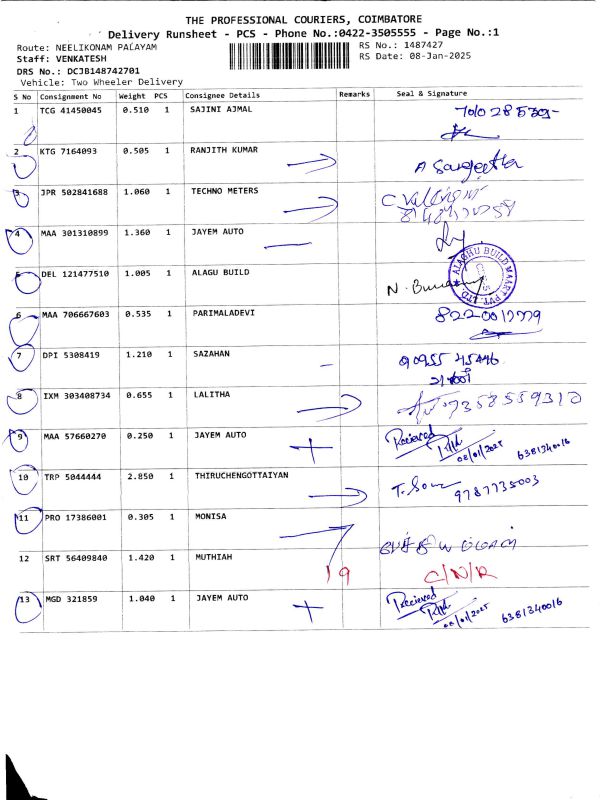 THE PROFESSIONAL COURIERS, COIMBATORE
Delivery Runsheet - PCS - Phone No.:0422-3505555 - Page No.:1
Route: NEELIKONAM PALAYAM
RS No.: 1487427
Staff: VENKATESH
RS Date: 08-Jan-2025
DRS No.: DCJB148742701
Vehicle: Two Wheeler Delivery
S No Consignment No Weight PCS Consignee Details Remarks Seal & Signature
1 TCG 41450045 0.510 1 SAJINI AJMAL
2 KTG 7164093 0.505 1 RANJITH KUMAR A Sangeetha
3 JPR 502841688 1.060 1 TECHNO METERS
4 MAA 301310899 1.360 1 JAYEM AUTO
5 DEL 121477510 1.005 1 ALAGU BUILD N.
6 MAA 706667603 0.535 1 PARIMALADEVI 8220017779
7 DPI 5308419 1.210 1 SAZAHAN 90955 45446
8 IXM 303408734 0.655 1 LALITHA 7358559312
9 MAA 57660270 0.250 1 JAYEM AUTO Received 08/01/2025 6381340016
10 TRP 5044444 2.850 1 THIRUCHENGOTTAIYAN 9787735003
11 PRO 17386001 0.305 1 MONISA
12 SRT 56409840 1.420 1 MUTHIAH 19 C/N/R
13 MGD 321859 1.040 1 JAYEM AUTO Received 08/01/2025 6381340016